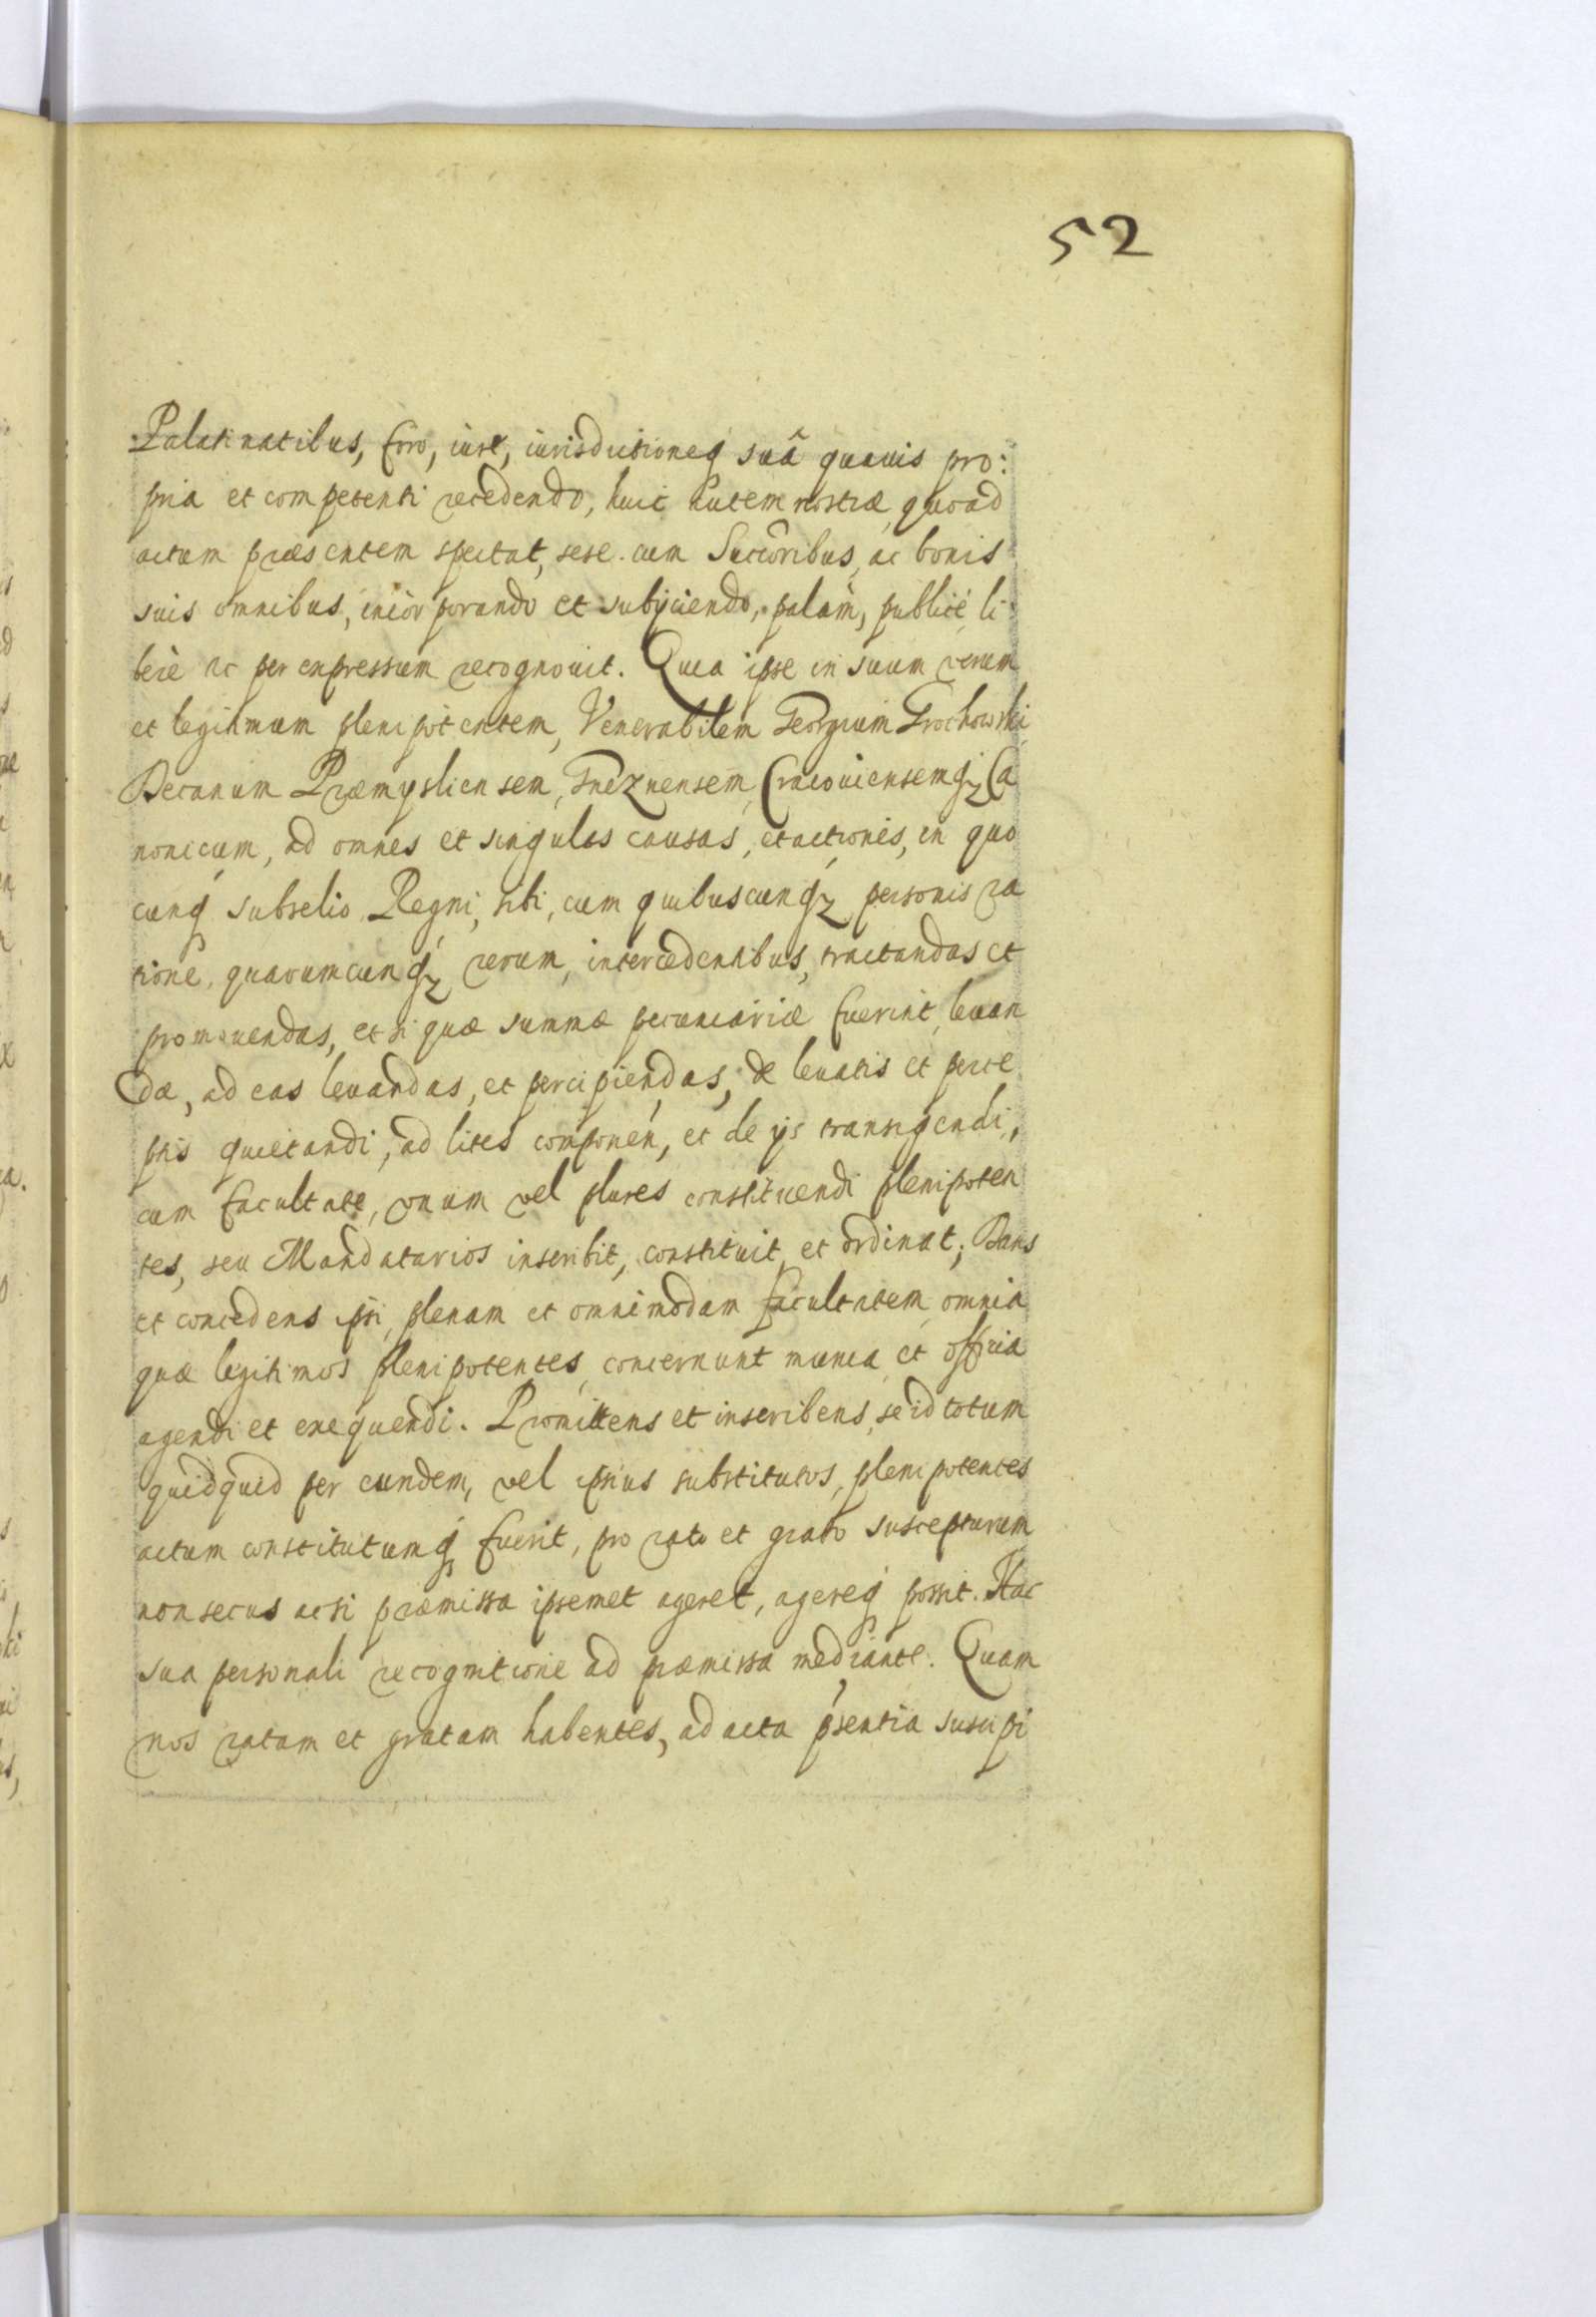 52
Palatinatibus, foro, iure, iurisdictioneq suâ quauis pro:
pria et competenti recedendo, huic autem nostræ, quoad
actum præsentem spectat, sese cum Succoribus, ac bonis
suis omnibus, incorporando et subijciendo, palàm, publicè, li
berè ac per expressum recognouit. Quia ipse in suum verum
et legitimum plenipotentem, Venerabilem Georgium Grochowski
Decanum Præmysliensem, Gneznensem, Cracouiensemq Ca
nonicum, ad omnes et singulas causas, et actiones, in quo
cunq subselio Regni, sibi, cum quibuscunq personis ra
tione, quarumcunq rerum, intercedentibus, tractandas et
promouendas, et si quæ summæ pecuniariæ fuerint leuan
dæ, ad eas leuandas, et percipiendas, de leuatis et perce
ptis quietandi, ad lites componen, et de ijs transigendi,
cum facultate, vnum vel plures constituendi plenipoten
tes, seu Mandatarios inscribit, constituit, et ordinat; Dans
et concedens ipsi, plenam et omnimodam facultatem, omnia
quæ legitimos plenipotentes, concernunt munia et officia
agendi et exequendi. Promittens et inscribens, se id totum
quidquid per eundem, vel ipsius substitutos, plenipotentes
actum constitutumq fuerit, pro rato et grato suscepturum
non secus acsi præmissa ipsemet ageret, agereq possit. Hac
sua personali recognitione ad præmissa mediante. Quam
nos ratam et gratam habentes, ad acta pńsentia suscipi